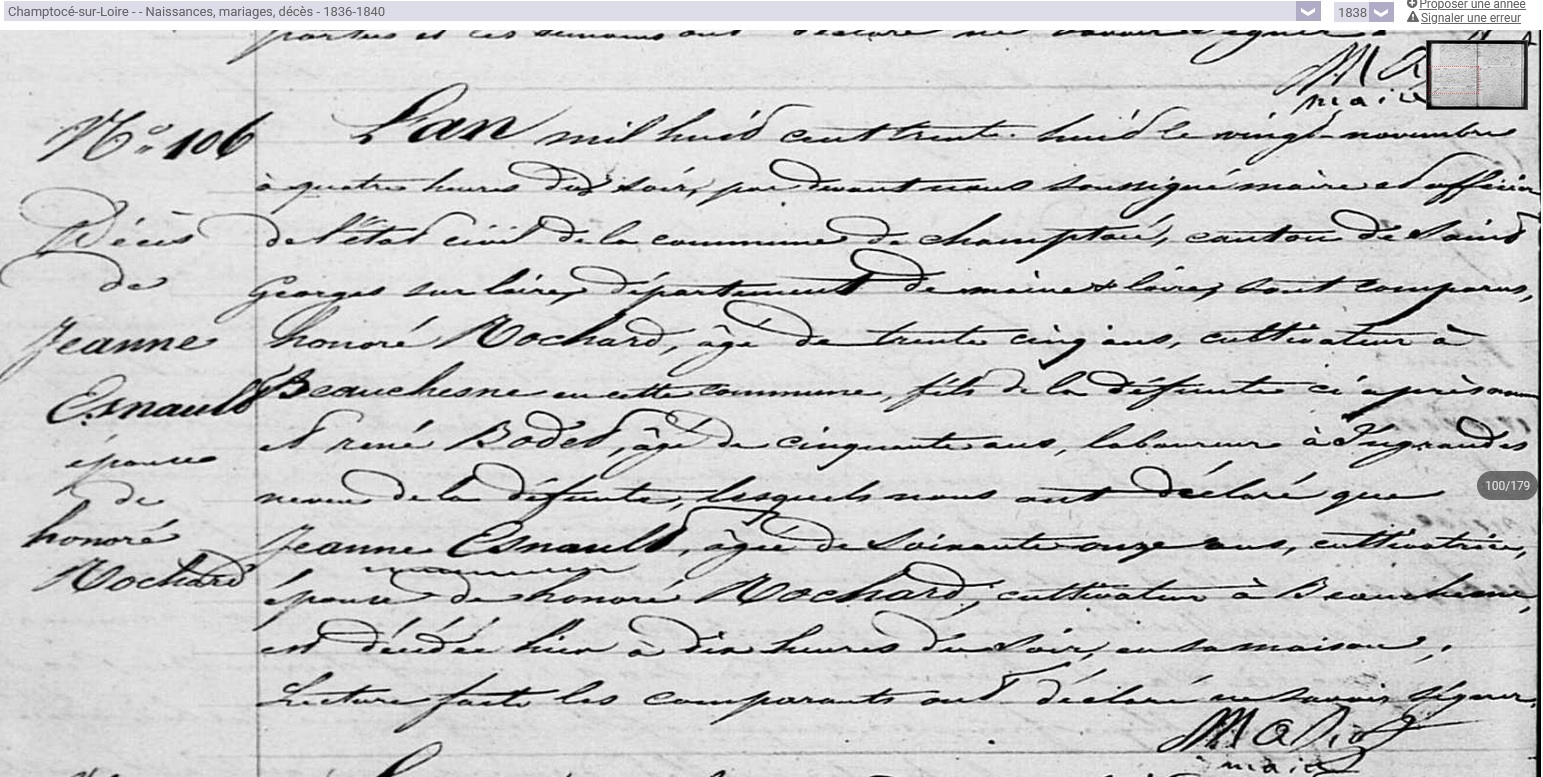 Champtocé-sur-Loire - - Naissances, mariages, décès - 1836-1840
1838
Proposer une année
Signaler une erreur
maire
N° 106
L'an mil huit cent trente huit le vingt novembre
à quatre heures du soir, par devant nous soussigné maire et officier
Décès
de l'état civil de la commune de champtocé, canton de Saint
de
Georges sur loire, département de maine & loire, sont comparus,
Jeanne
honoré Rochard, âgé de trente cinq ans, cultivateur à
Esnault
Beauchesne en cette commune, fils de la défunte ci après
et rené Bodet, âgé de cinquante ans, laboureur à Ingrandes
épouse
neveu de la défunte, lesquels nous ont déclaré que
de
honoré
Jeanne Esnault, âgée de soixante onze ans, cultivatrice,
Rochard
épouse de honoré Rochard, cultivateur à Beauchesne,
est décédée hier à dix heures du soir, en sa maison,
Lecture faite les comparants ont déclaré ne savoir signer.
maire
100/179